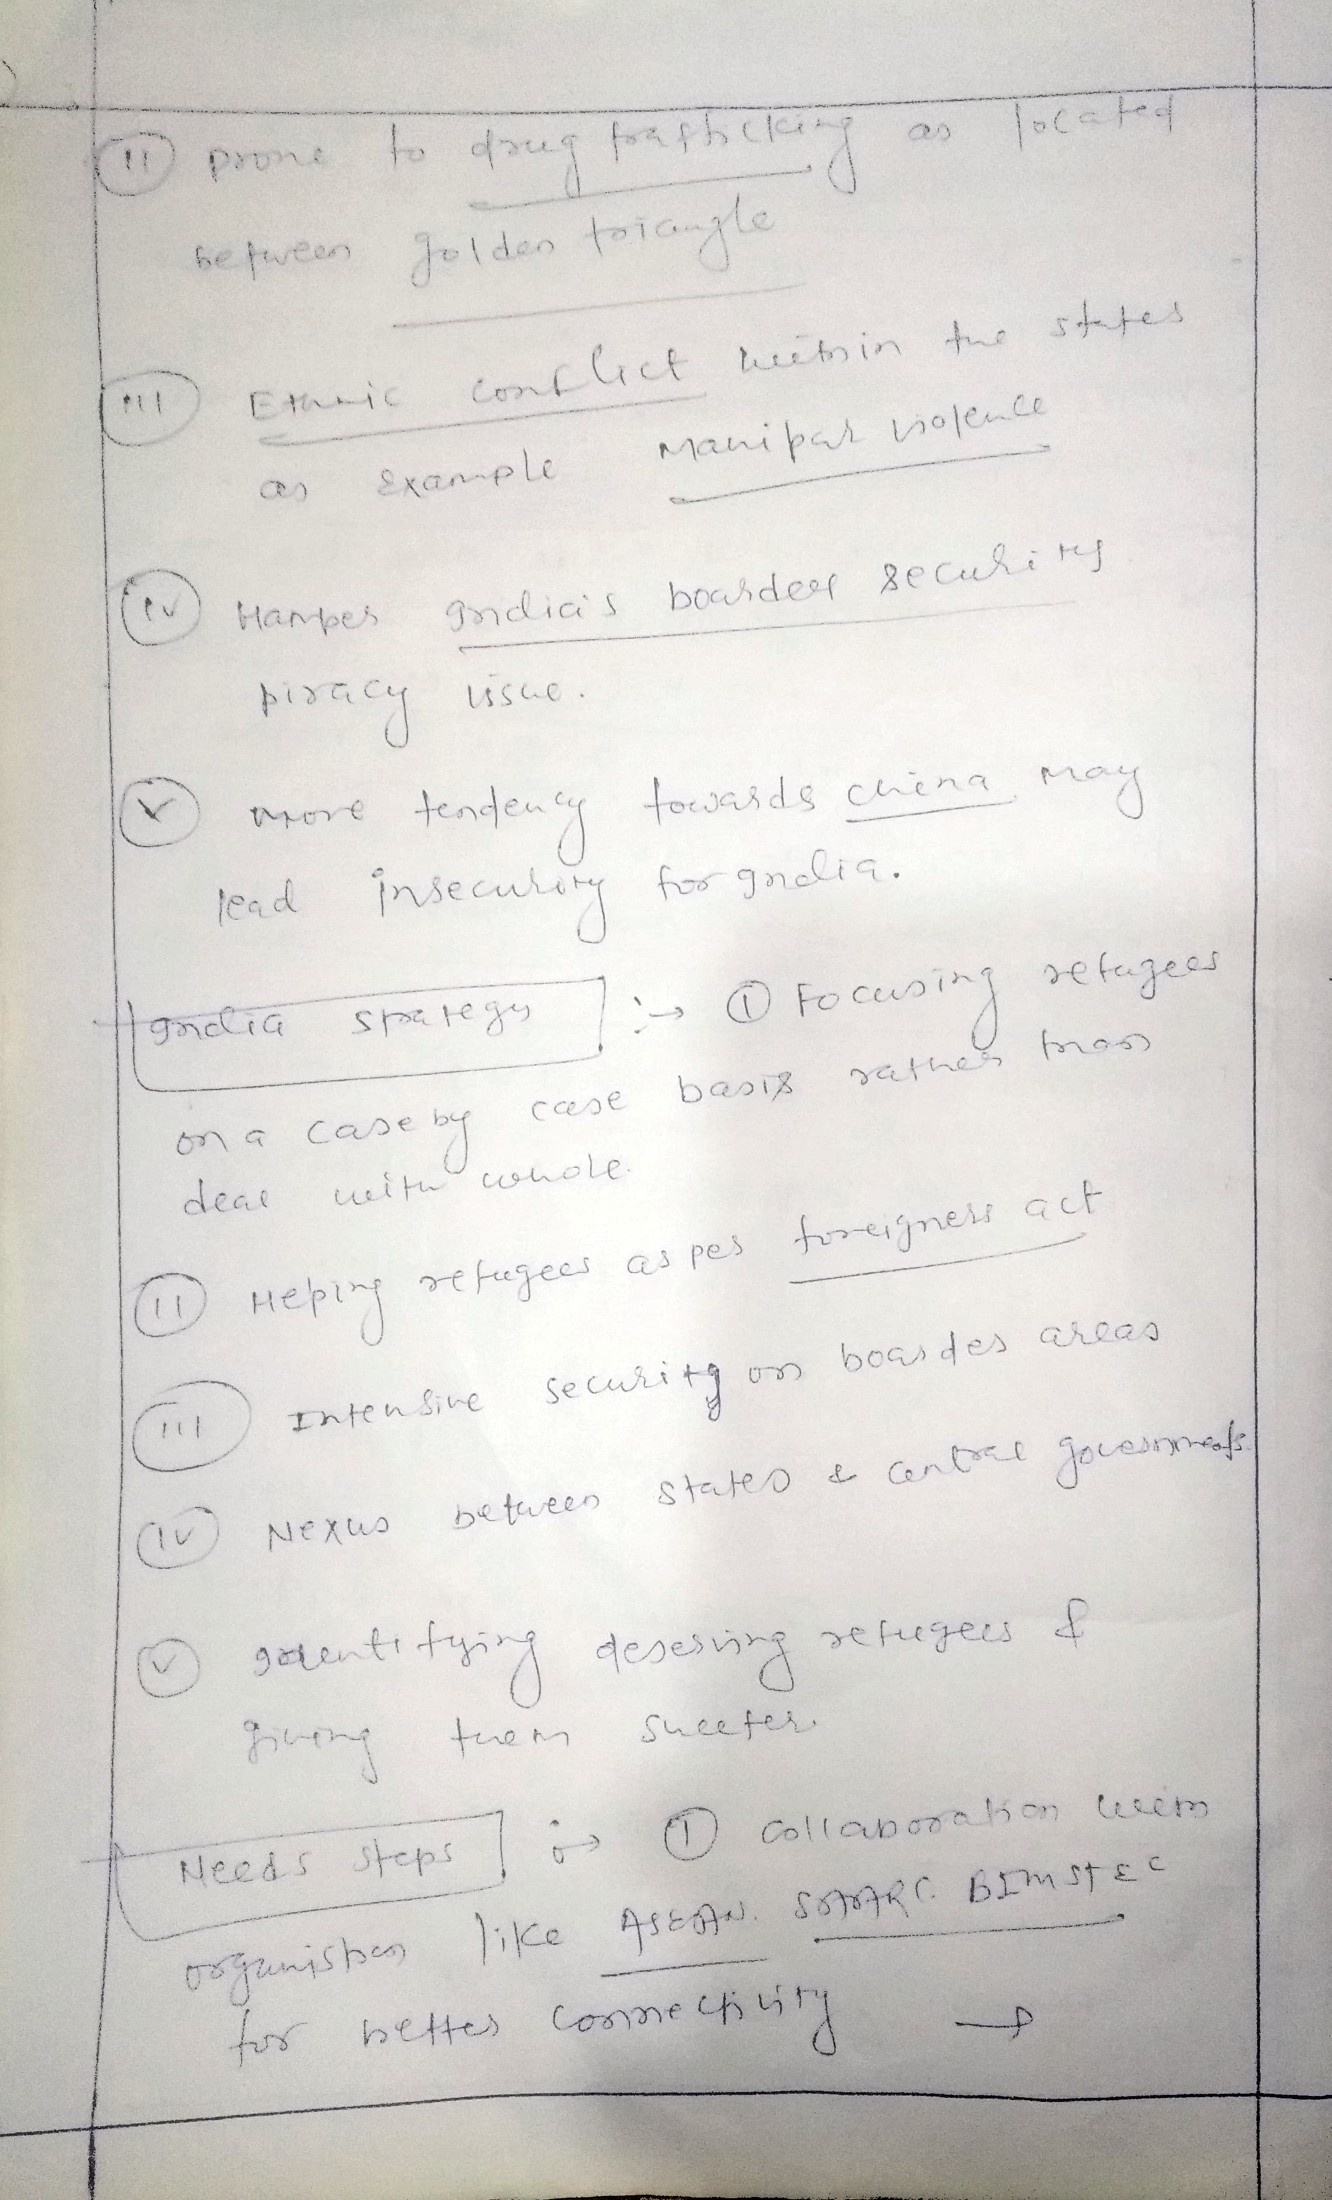 (ii) prone to drug trafficking as located
between golden triangle
(iii) Ethnic conflict within the states
as example Manipur violence
(iv) Hamper India's boarder security
piracy issue.
(v) more tendency towards china may
lead insecurity for India.
India strategy :→ (1) Focusing refugees
on a case by case basis rather than
deal with whole.
(ii) Heping refugees as per foreigners act
(iii) Intensive security on boarder areas
(iv) Nexus between states & central governments.
(v) Identifying deserving refugees &
giving them shelter.
Needs steps :→ (1) collaboration with
organistion like ASEAN. SAARC. BIMSTEC
for better connectivity →